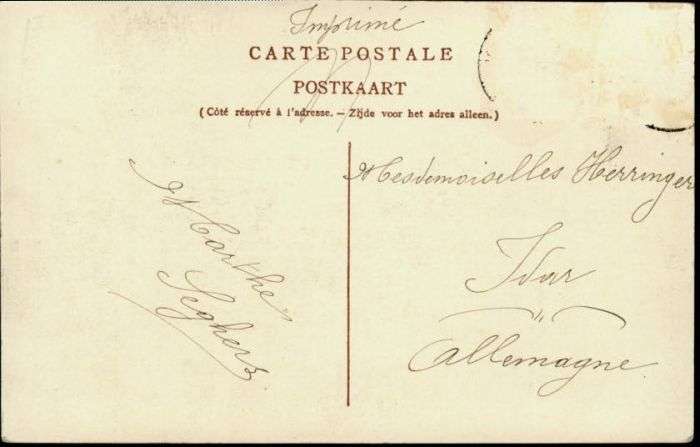 Imprimé
CARTE POSTALE
POSTKAART
(Côté réservé à l'adresse. — Zijde voor het adres alleen.)
Marthe
Seghers
Mesdemoiselles Herringer
Idar
"
Allemagne